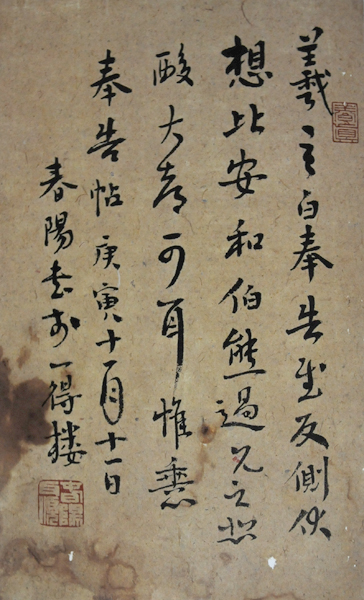 羲之白奉告慰反側伏
想比安和伯熊過見之悲
酸大都可耳惟垂
奉告帖庚寅十一月十一日
春陽書於一得樓